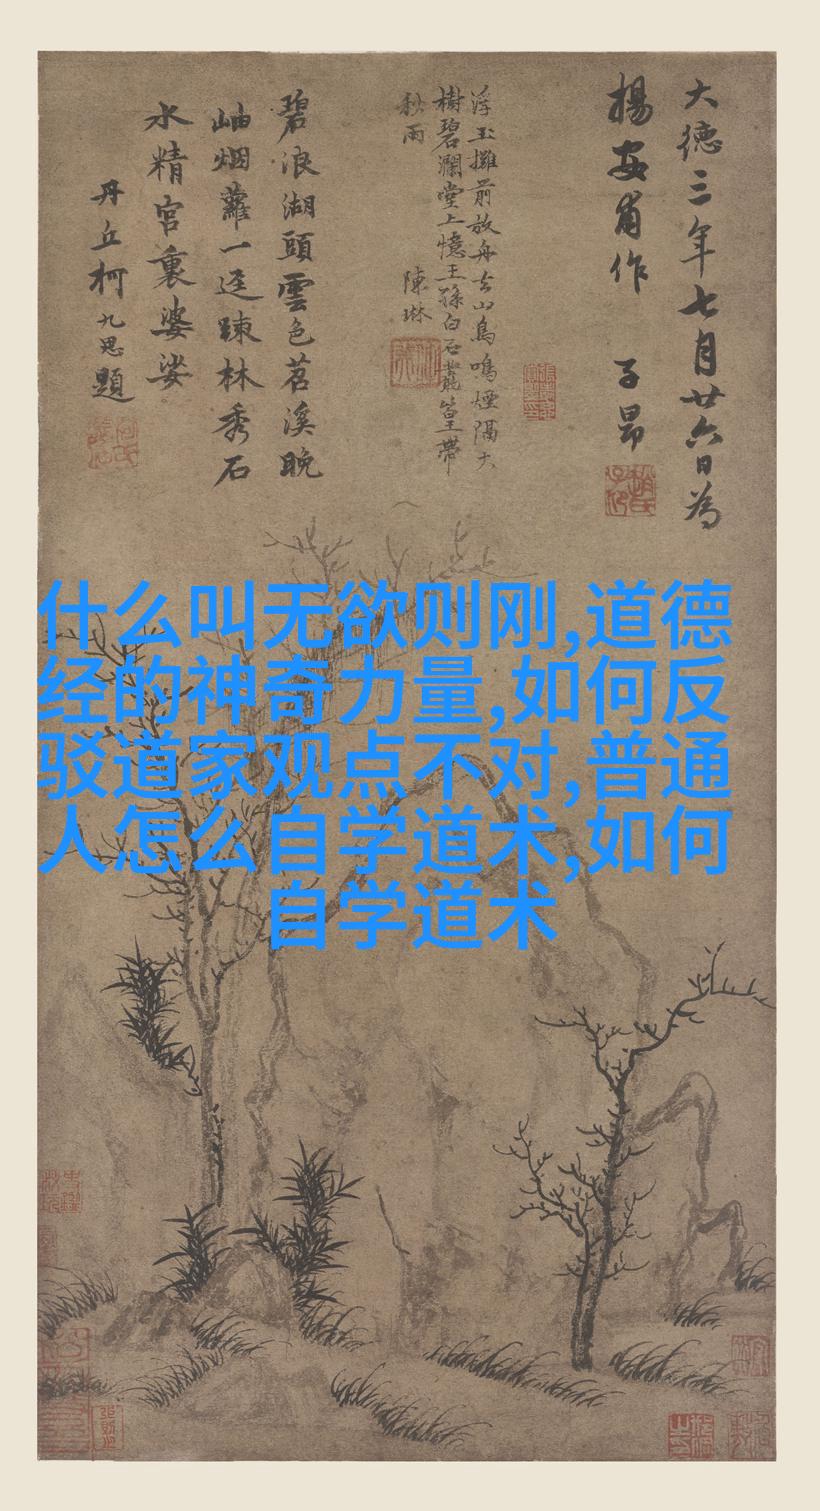 大德三年七月廿六日為
楊安甫作 子昂
浮玉攤前放舟去山鳥鳴煙隔大
樹碧瀾堂上憶王孫白石叢篁帶
秋雨 陳琳
碧浪湖頭雲色苕溪晚
岫烟蘿一逕踈林秀石
水精宮裏婆娑
丹丘柯九思題
什么叫无欲则刚,道德
经的神奇力量,如何反
驳道家观点不对,普通
人怎么自学道术,如何
自学道术